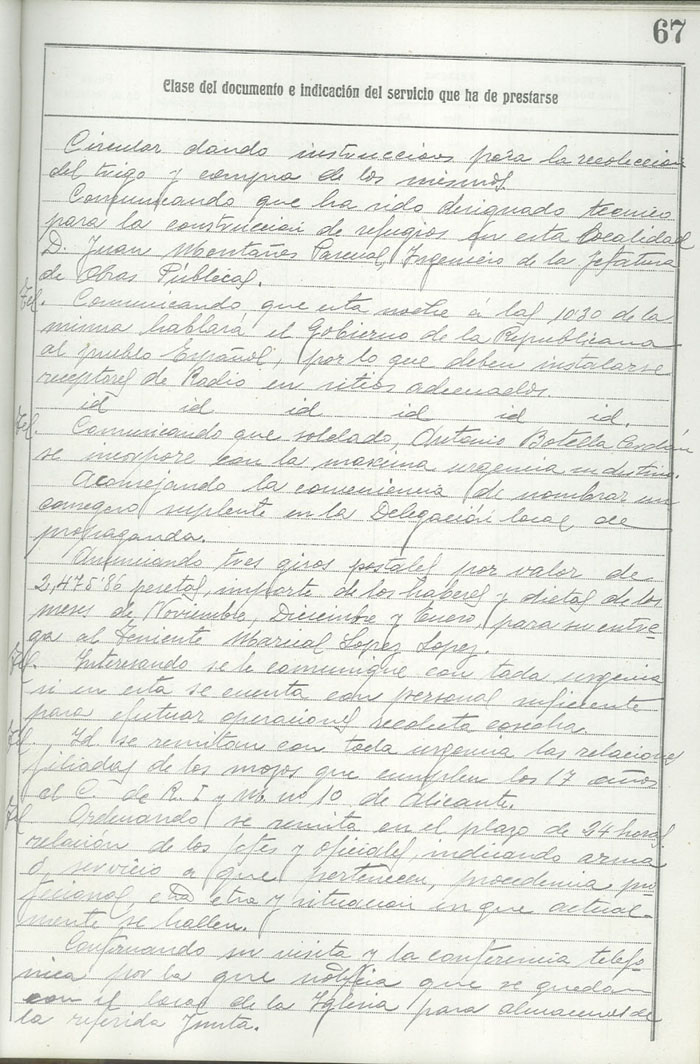 67
Clase del documento e indicación del servicio que ha de prestarse
Circular dando instrucciones para la recolección
del trigo y compra de los mismos.
Comunicando que ha sido designado tecnico
para la construccion de refugios en esta localidad
D. Juan Montaños Pascual, Ingeniero de la Jefatura
de Obras Públicas.
Tel. Comunicando que esta noche á las 10'20 de la
misma hablará el Gobierno de la Republicana
al pueblo Español, por lo que deben instalarse
receptores de Radio en sitios adecuados.
id id id id id id.
Tel. Comunicando que soldado, Antonio Botella
se incorpore con la maxima urgencia su destino.
Aconsejando la conveniencia de nombrar un
consegero suplente en la Delegación local de
propaganda.
Anunciando tres giros postales por valor de
2,475'86 pesetas, importe de los haberes y dietas de los
meses de Noviembre, Diciembre y Enero, para su entre-
ga al Teniente Marcial Lopez Lopez.
Tel. Interesando se le comunique con toda urgencia
si en esta se cuenta con personal suficiente
para efectuar operaciones recolecta cosecha.
Tel. Id se remitan con toda urgencia las relaciones
filiadas de los mozos que cumplen los 17 años
al C. de R. I y M. nº 10 de Alicante.
Tel. Ordenando se remita en el plazo de 24 horas
relación de los jefes y oficiales, indicando arma
o servicio a que pertenecen, procedencia pro
fesional, etra y situacion en que actual-
mente se hallen.
Confirmando su visita y la conferencia telefo
nica por la que notificia que se quedan
con el local de la Iglesia para almacenes de
la referida Junta.